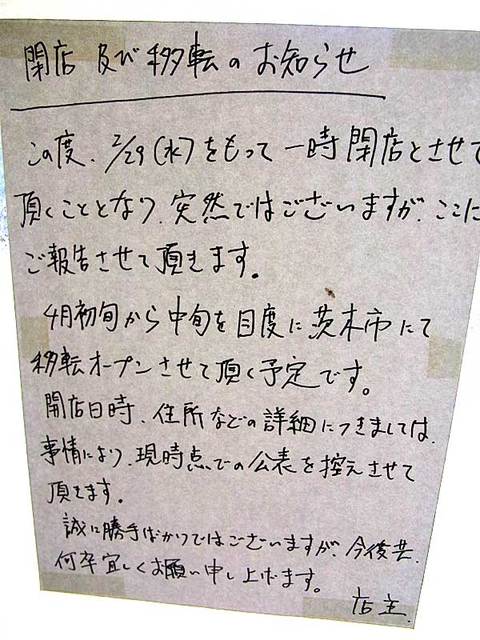 閉店 及び移転のお知らせ
この度、2/29(水)をもって一時閉店とさせて
頂くこととなり、突然ではございますが、ここに
ご報告させて頂きます。
4月初旬から中旬を目度に茨木市にて
移転オープンさせて頂く予定です。
開店日時、住所などの詳細につきましては、
事情により、現時点での公表を控えさせて
頂きます。
誠に勝手ばかりではございますが、今後共、
何卒宜しくお願い申し上げます。
店主.